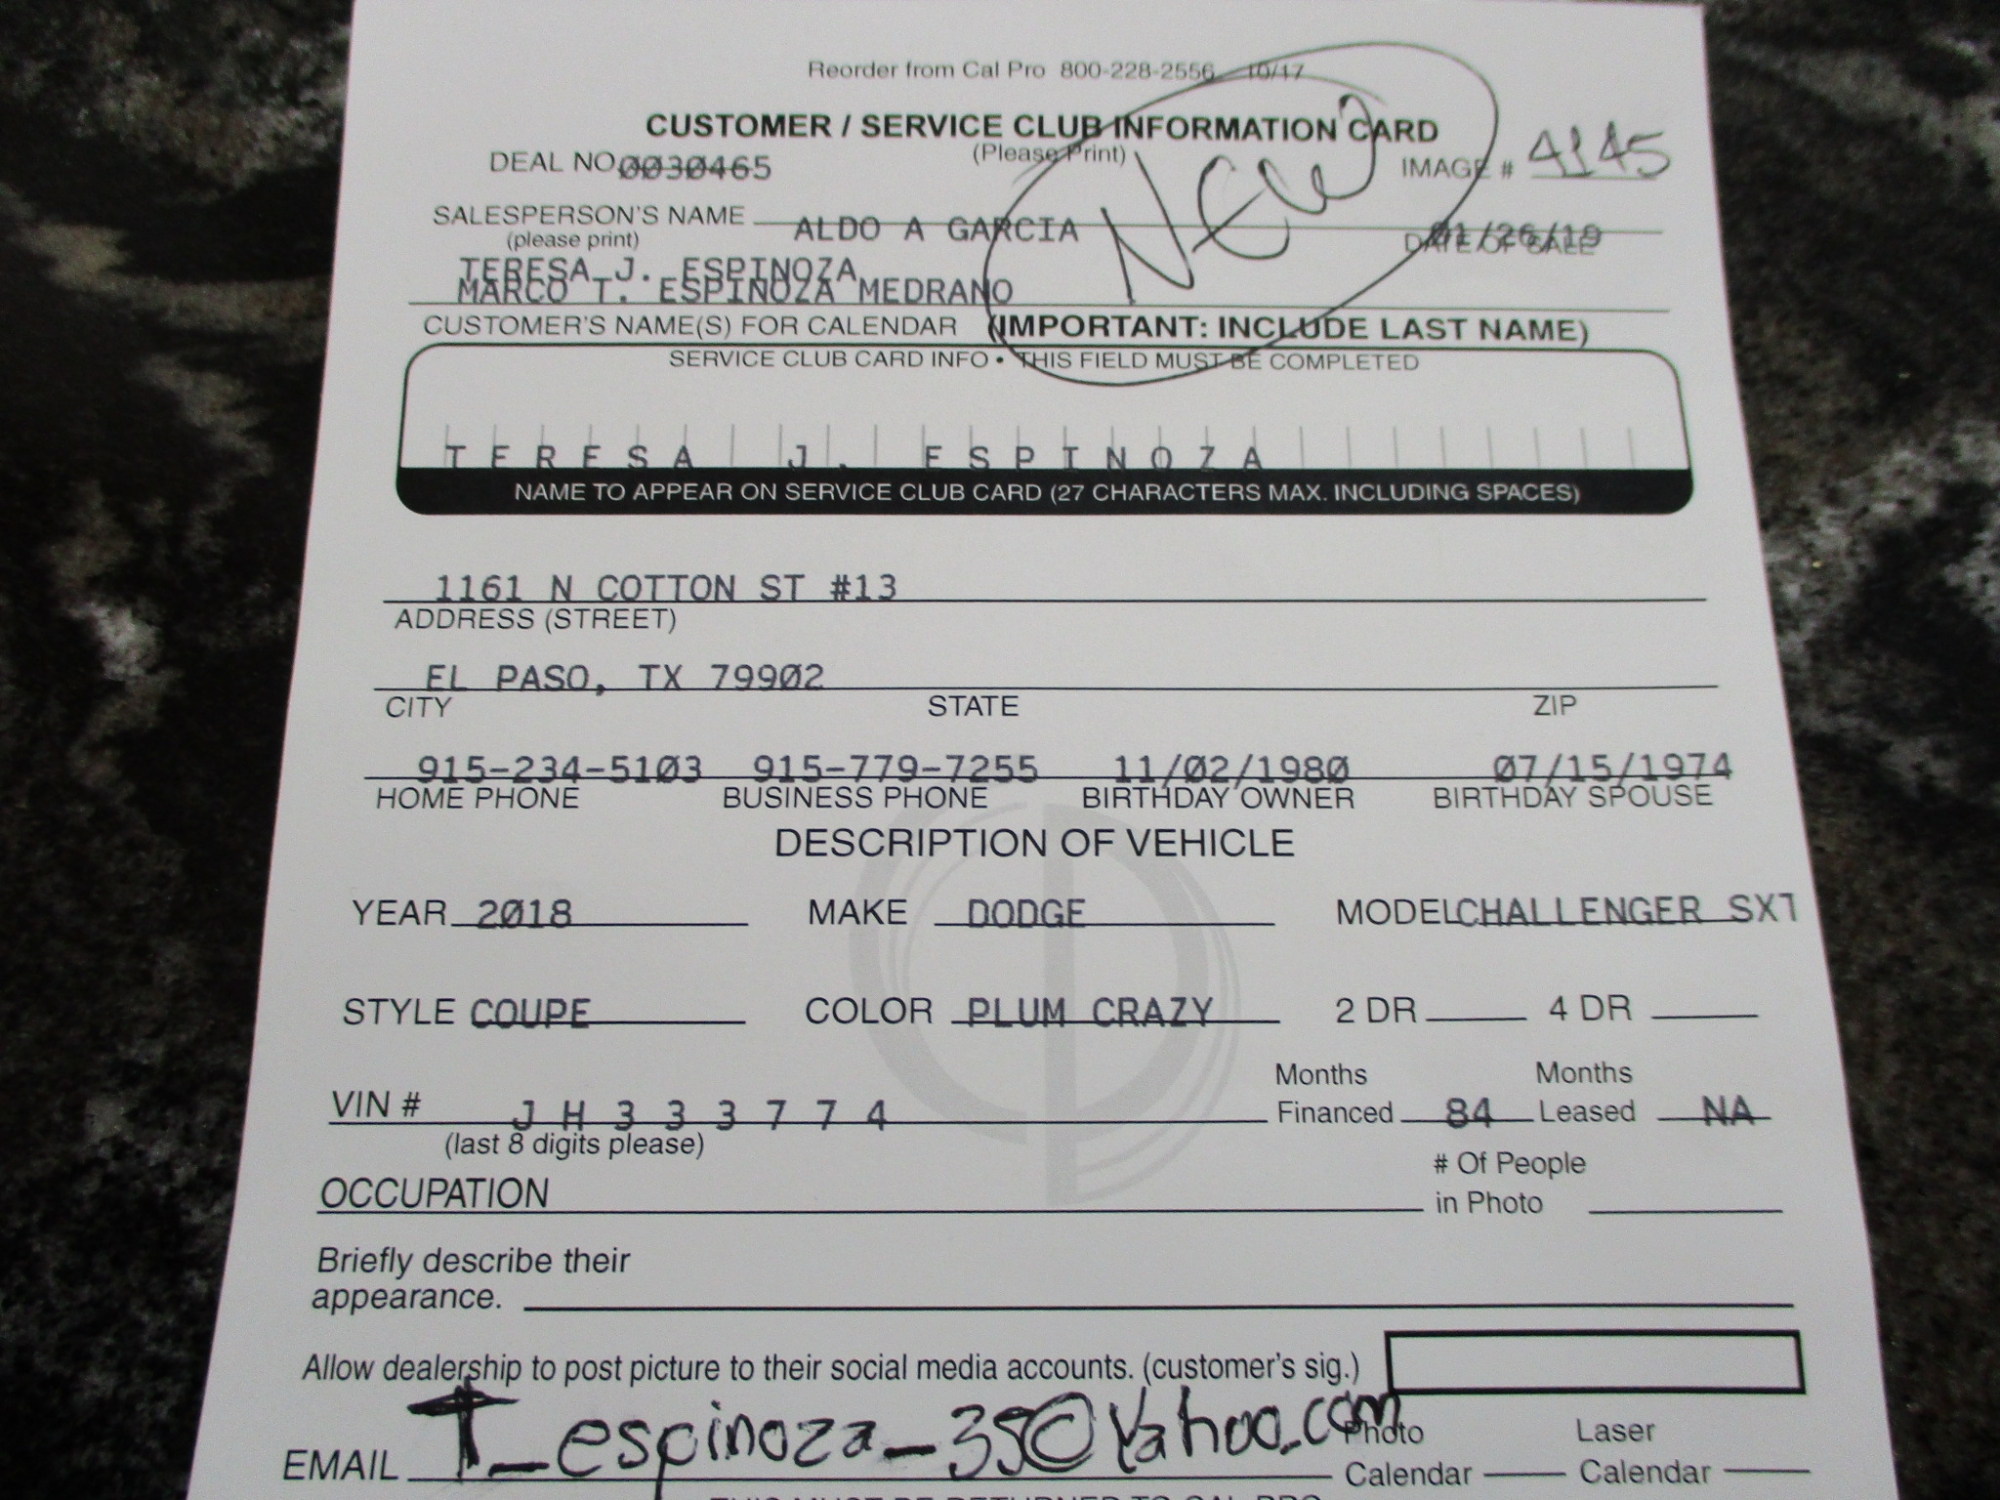 Reorder from Cal Pro 800-228-2556 10/17
CUSTOMER / SERVICE CLUB INFORMATION CARD
(Please Print)
New
DEAL NO. 0030465
IMAGE # 4145
SALESPERSON'S NAME ALDO A GARCIA
(please print)
DATE OF SALE 01/26/19
TERESA J. ESPINOZA
MARCO T. ESPINOZA MEDRANO
CUSTOMER'S NAME(S) FOR CALENDAR (IMPORTANT: INCLUDE LAST NAME)
SERVICE CLUB CARD INFO • THIS FIELD MUST BE COMPLETED
TERESA J. ESPINOZA
NAME TO APPEAR ON SERVICE CLUB CARD (27 CHARACTERS MAX. INCLUDING SPACES)
1161 N COTTON ST #13
ADDRESS (STREET)
EL PASO, TX 79902
CITY STATE ZIP
915-234-5103 915-779-7255 11/02/1980 07/15/1974
HOME PHONE BUSINESS PHONE BIRTHDAY OWNER BIRTHDAY SPOUSE
DESCRIPTION OF VEHICLE
YEAR 2018 MAKE DODGE MODEL CHALLENGER SXT
STYLE COUPE COLOR PLUM CRAZY 2 DR 4 DR
VIN # JH333774
(last 8 digits please)
Months Financed 84 Months Leased NA
OCCUPATION
# Of People in Photo
Briefly describe their
appearance.
Allow dealership to post picture to their social media accounts. (customer's sig.)
EMAIL T_espinoza_35@Yahoo.com
Photo Calendar Laser Calendar
THIS MUST BE RETURNED TO CAL PRO